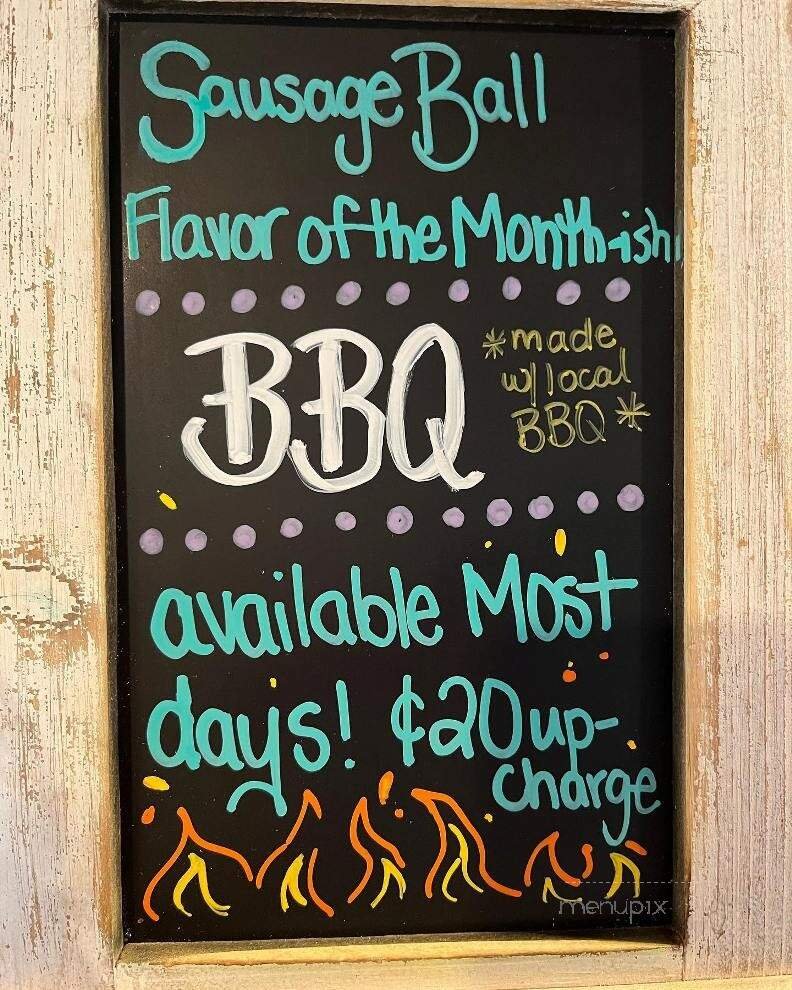 Sausage Ball
Flavor of the Month-ish
BBQ
*made
w/ local
BBQ*
available Most
days! ¢20 up-
charge
menupix